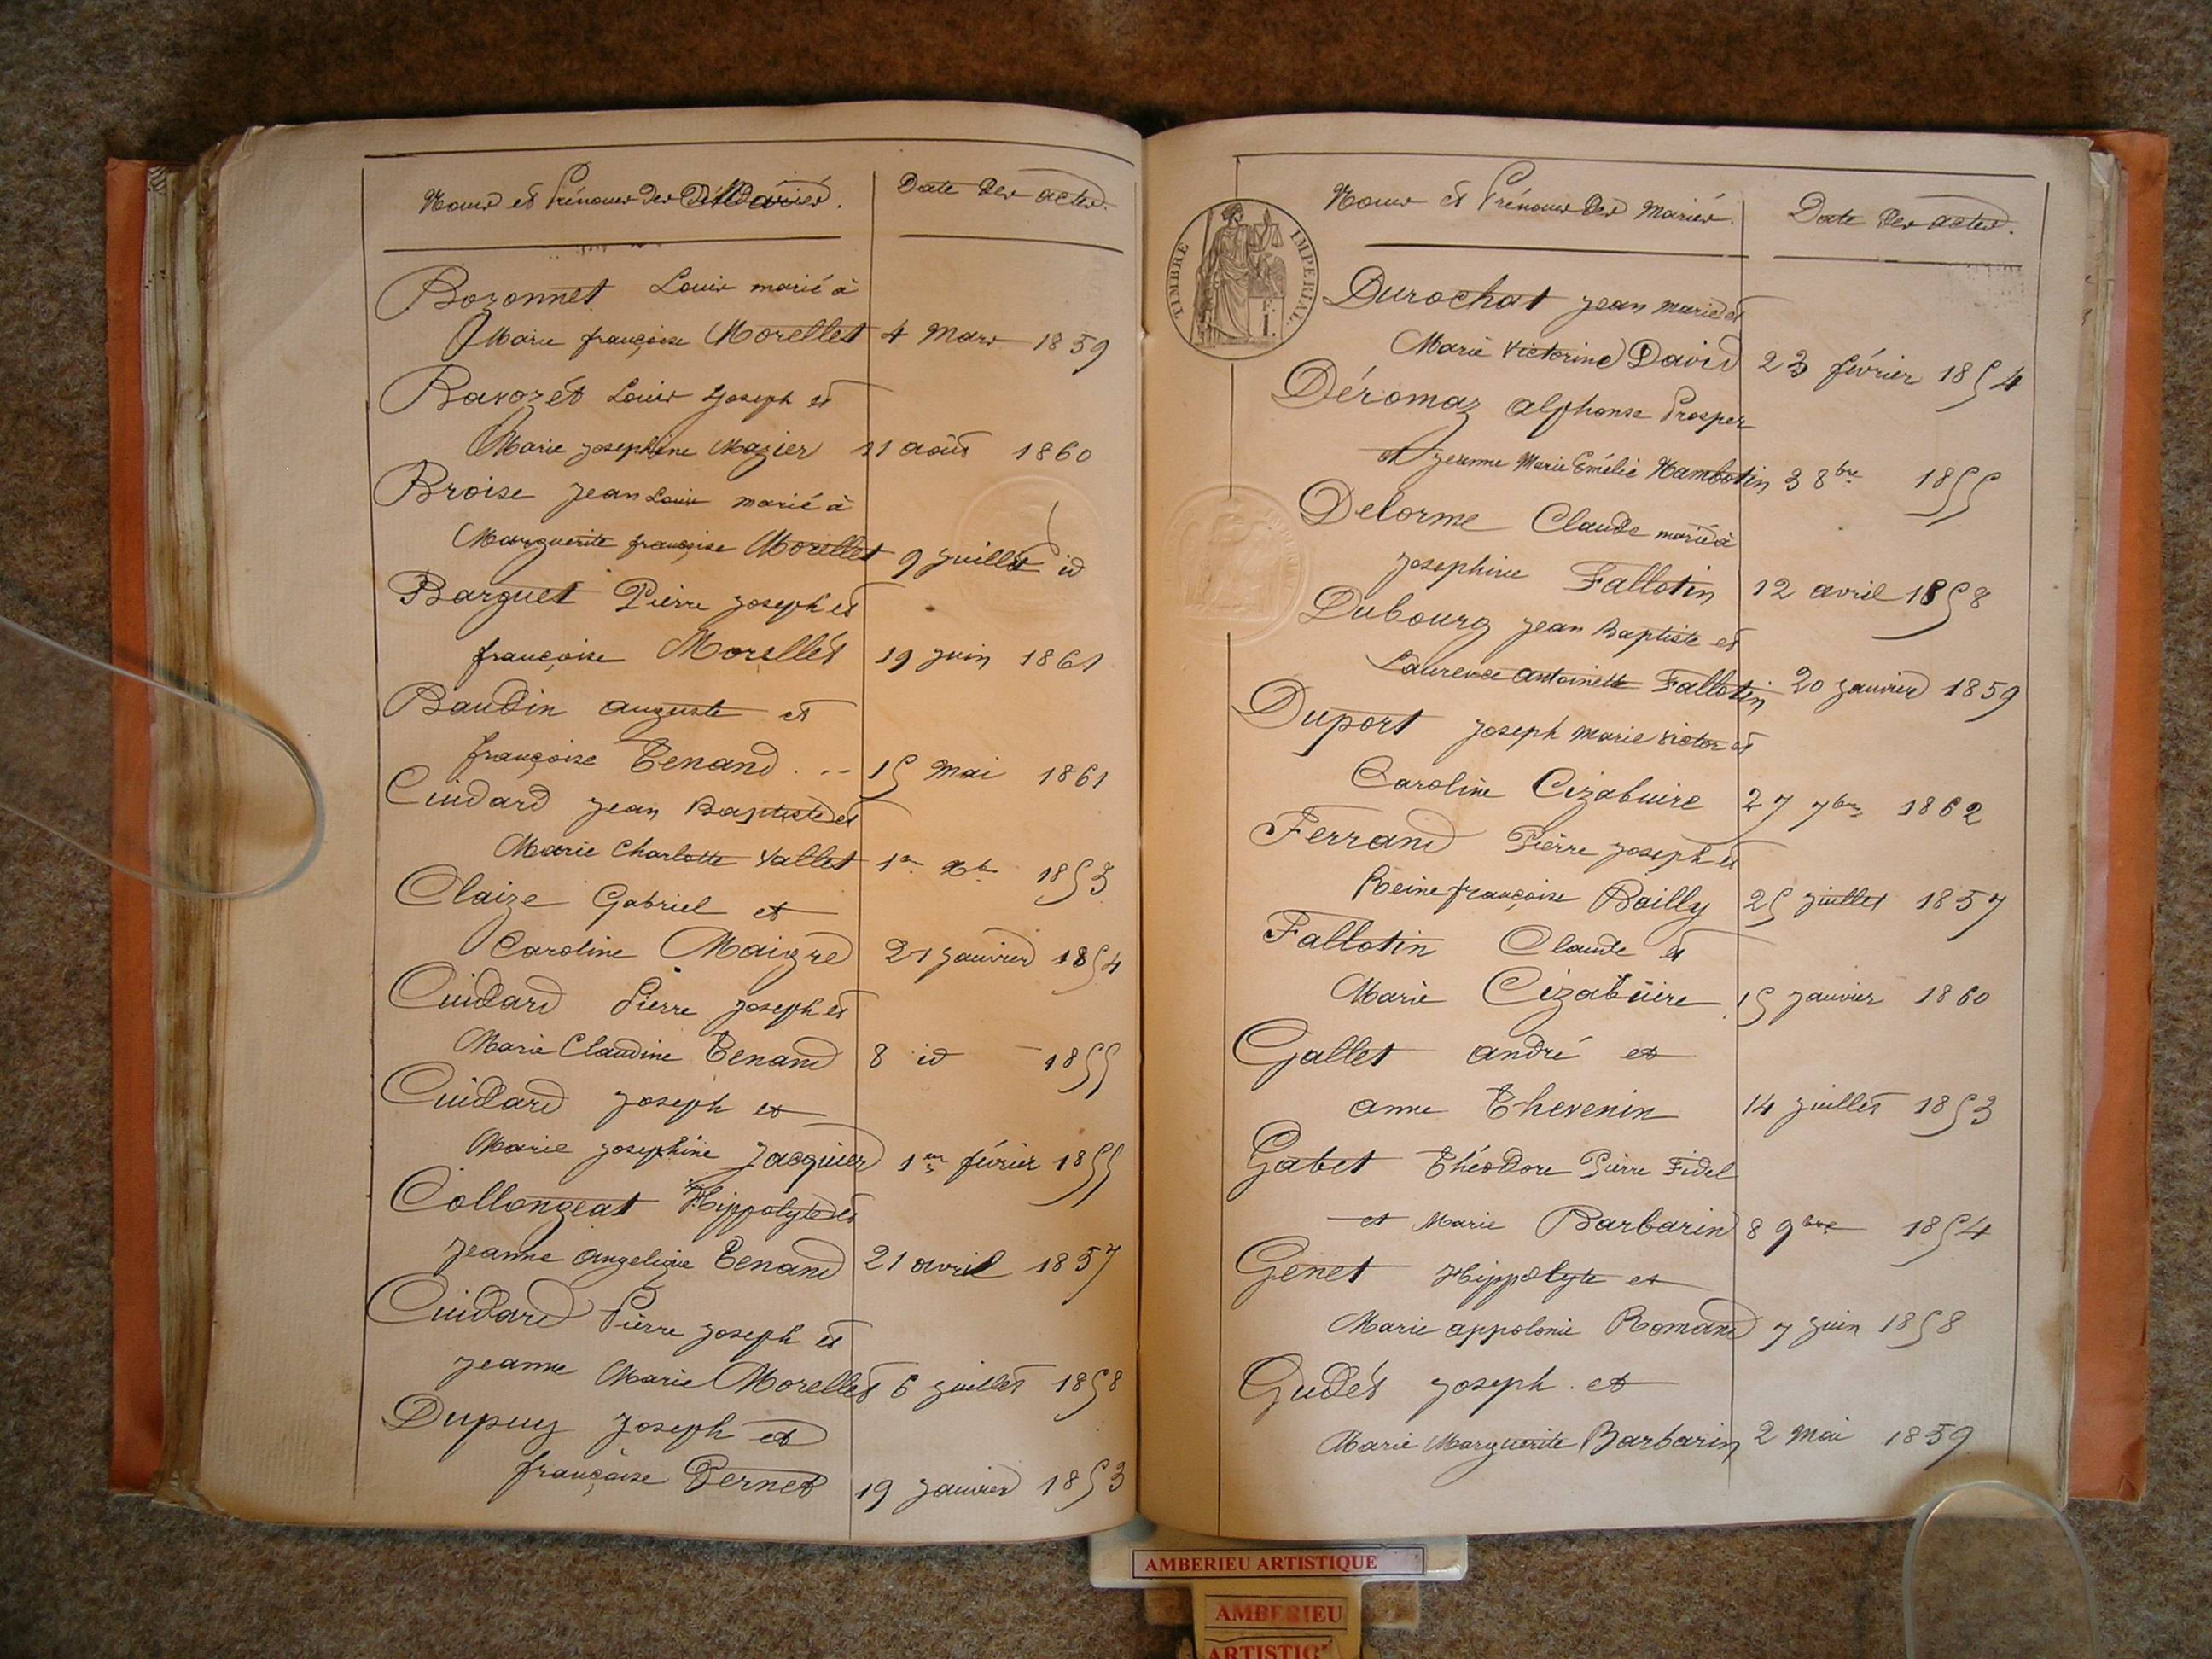 Noms et Prénoms des Mariés.
Date des actes.
Bozonnet Louis marié à
Marie françoise Morellet 4 Mars 1859
Bavozet Louis Joseph et
Marie josephine Mazier 11 août 1860
Broise Jean Louis marié à
Marguerite françoise Morellet 9 juillet id
Barquet Pierre joseph et
françoise Morellet 19 juin 1861
Baudin auguste et
françoise Tenand 15 Mai 1861
Cuidard jean Baptiste et
Marie Charlotte Vallet 1er Xbre 1853
Claize Gabriel et
Caroline Maigre 21 janvier 1854
Cuidard Pierre joseph et
Marie Claudine Tenand 8 id 1855
Cuidard joseph et
Marie josephine Jacquier 1er février 1855
Collongeat Hippolyte et
jeanne angelique Tenand 21 avril 1857
Cuidard Pierre joseph et
jeanne Marie Morellet 6 juillet 1858
Dupuy joseph et
françoise Pernet 19 janvier 1853
Noms et Prénoms des Mariés.
Date des actes.
TIMBRE IMPERIAL.
Durochat jean marie et
Marie Victorine David 23 février 1854
Déromaz alphonse Prosper
et jeanne Marie Emélie Hambotin 3 8bre 1855
Delorme Claude marié à
josephine Fallotin 12 avril 1858
Dubourg jean Baptiste et
Laurence antoinette Fallotin 20 janvier 1859
Duport joseph marie victor et
Caroline Cizabuire 27 7bre 1862
Ferrand Pierre joseph et
Reine françoise Bailly 25 juillet 1857
Fallotin Claude et
Marie Cizabuire 15 janvier 1860
Gallet andré et
anne Thevenin 14 juillet 1853
Gabet Théodore Pierre Fidel
et Marie Barbarin 8 9bre 1854
Genet Hippolyte et
Marie appolonie Romand 7 juin 1858
Gudet joseph. et
Marie Marguerite Barbarin 2 Mai 1859
AMBERIEU ARTISTIQUE
AMBERIEU
ARTISTIQ